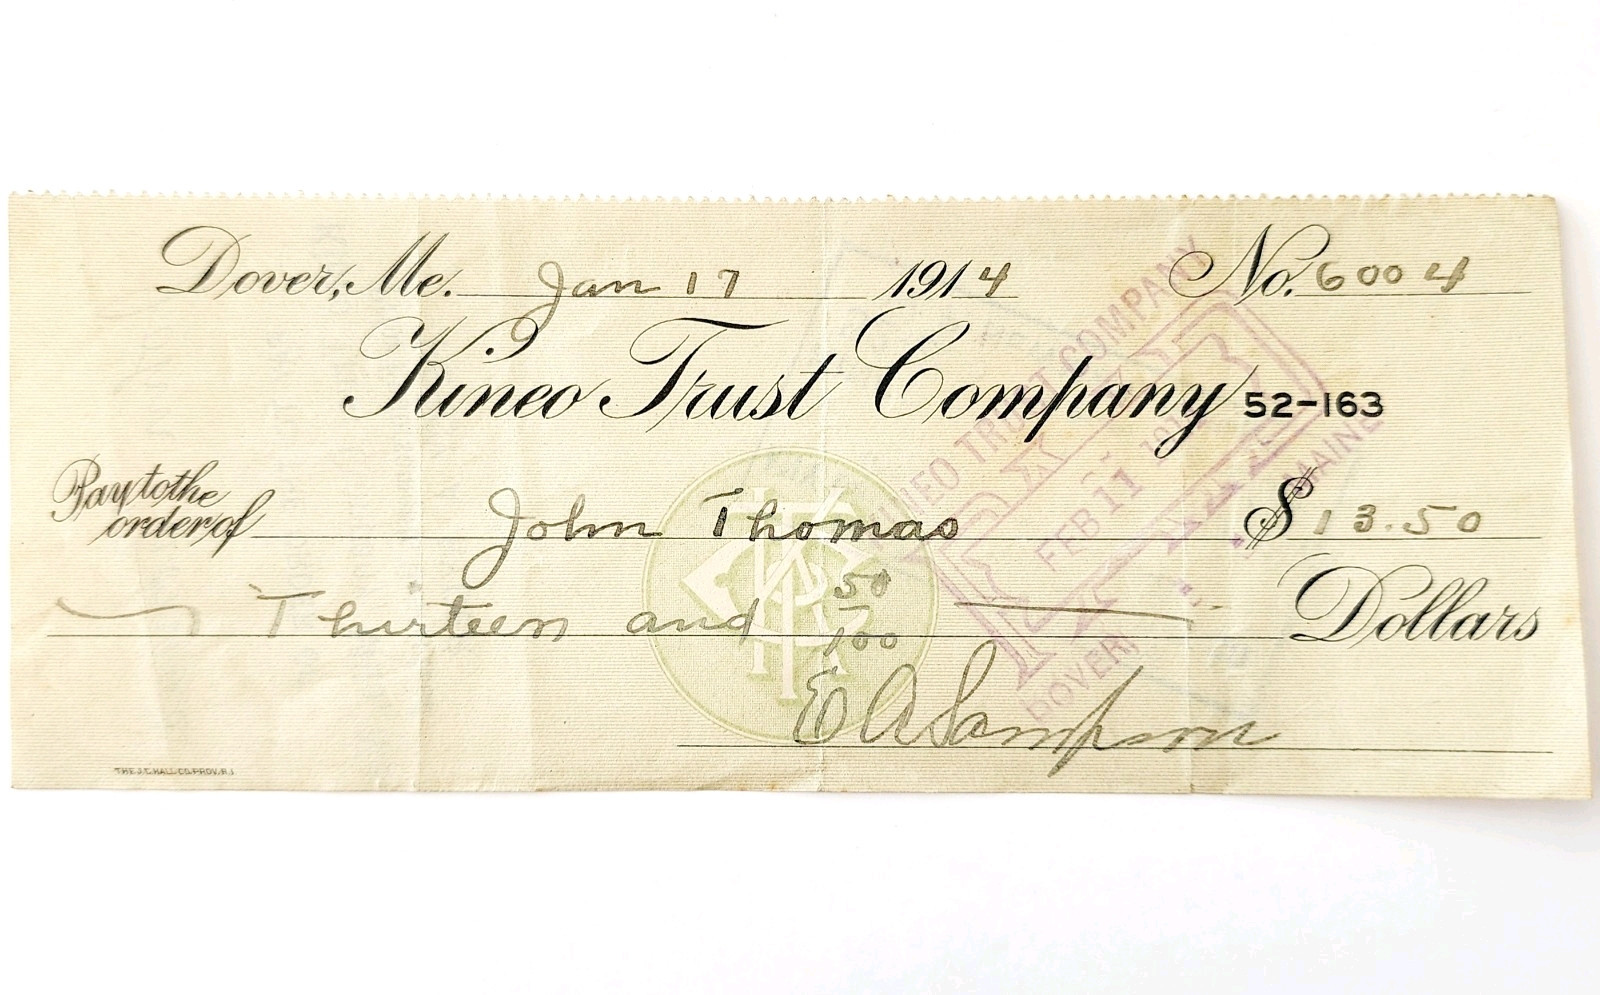 Dover, Me. Jan 17 1914 No. 6004
Kineo Trust Company 52-163
Pay to the order of John Thomas $13.50
Thirteen and 50/100 Dollars
E A Sampson
THE J.C. HALL CO. PROV. R.I.
KINEO TRUST COMPANY
PAID
FEB 11
DOVER, MAINE